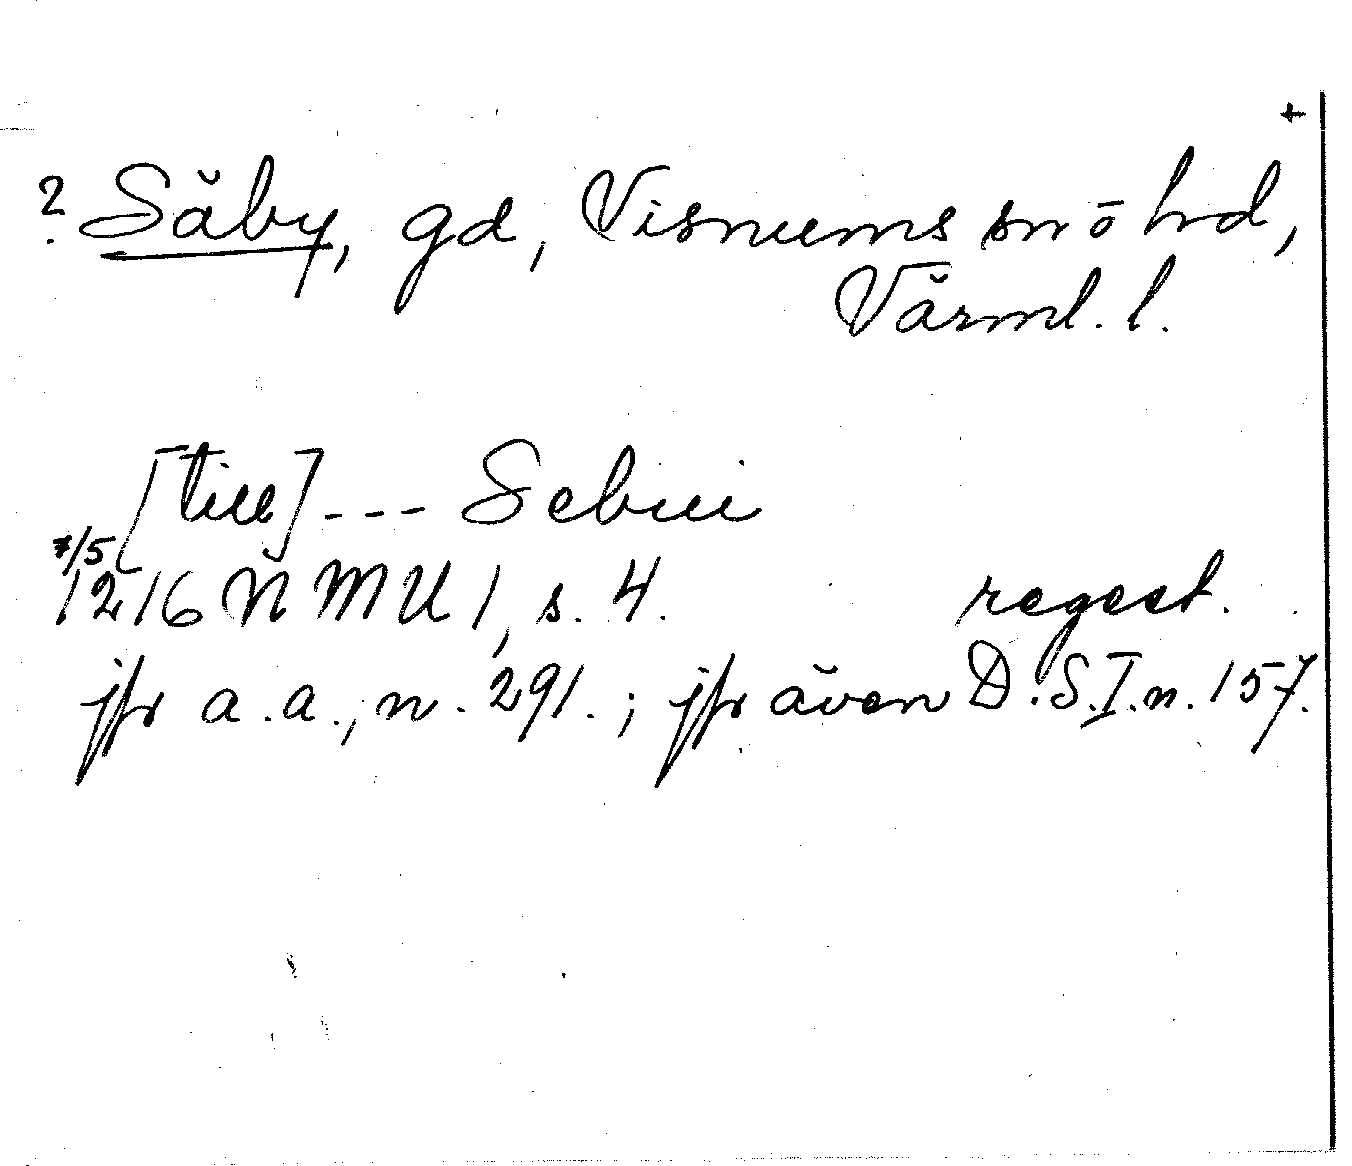 +
? Säby, gd, Visnums sn o hd,
Värml. l.
[till] --- Sebui
7/5
1216 NMU 1, s. 4. regest.
jfr a.a., n. 291. ; jfr även D.S.I.n. 157.